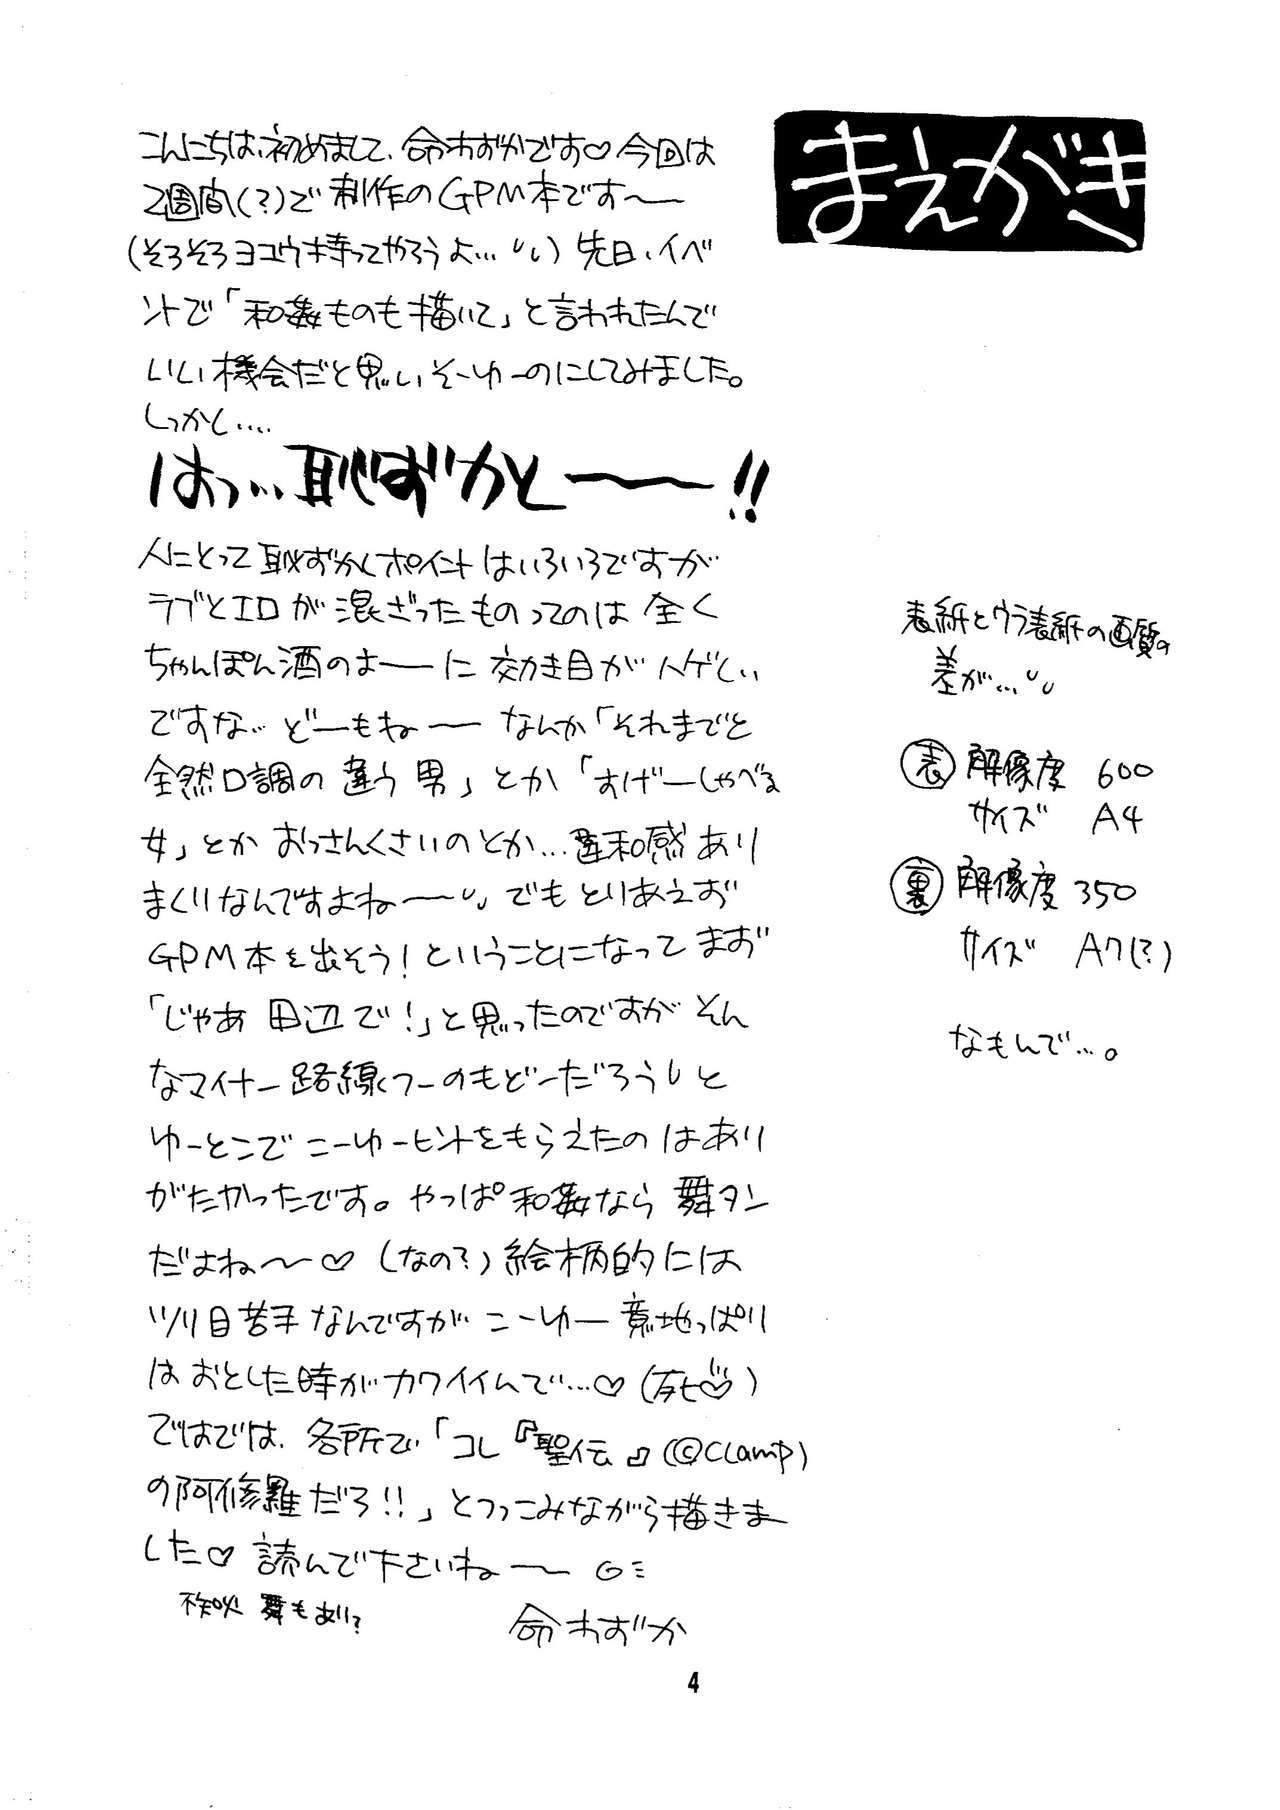 まえがき
こんにちは、初めまして、命わずかです♡今回は
2週間(?)で制作のGPM本です〜
(そろそろヨユウ持ってやろうよ…) 先日、イベ
ントで「和姦ものも描いて」と言われたんで
いい機会だと思いそーゆーのにしてみました。
しっかし‥‥
はっ…恥ずかと〜〜!!
人にとって恥ずかしポイントはいろいろですが
ラブとエロが混ざったものってのは全く
ちゃんぽん酒のよーに効き目がハゲしい
ですな… どーもね〜 なんか「それまでと
全然口調の違う男」とか「すげーしゃべる
女」とかおっさんくさいのとか…違和感あり
まくりなんですよね〜 でもとりあえず
GPM本を出そう!ということになってまず
「じゃあ田辺で!」と思ったのですがそん
なマイナー路線くうのもどーだろうと
ゆーとこでこーゆーヒントをもらえたのはあり
がたかったです。やっぱ和姦なら舞タン
だよね〜♡(なの?)絵柄的には
ツリ目苦手なんですがこーゆー意地っぱり
はおとした時がカワイイんで…♡(死♡)
ではでは、各所で「コレ『聖伝』(©CLAMP)
の阿修羅だろ!!」とつっこみながら描きま
した♡読んで下さいね〜
舞もあり?
命わずか
表紙とウラ表紙の画質の
差が…
表 解像度 600
サイズ A4
裏 解像度 350
サイズ A7(?)
なもんで…。
4